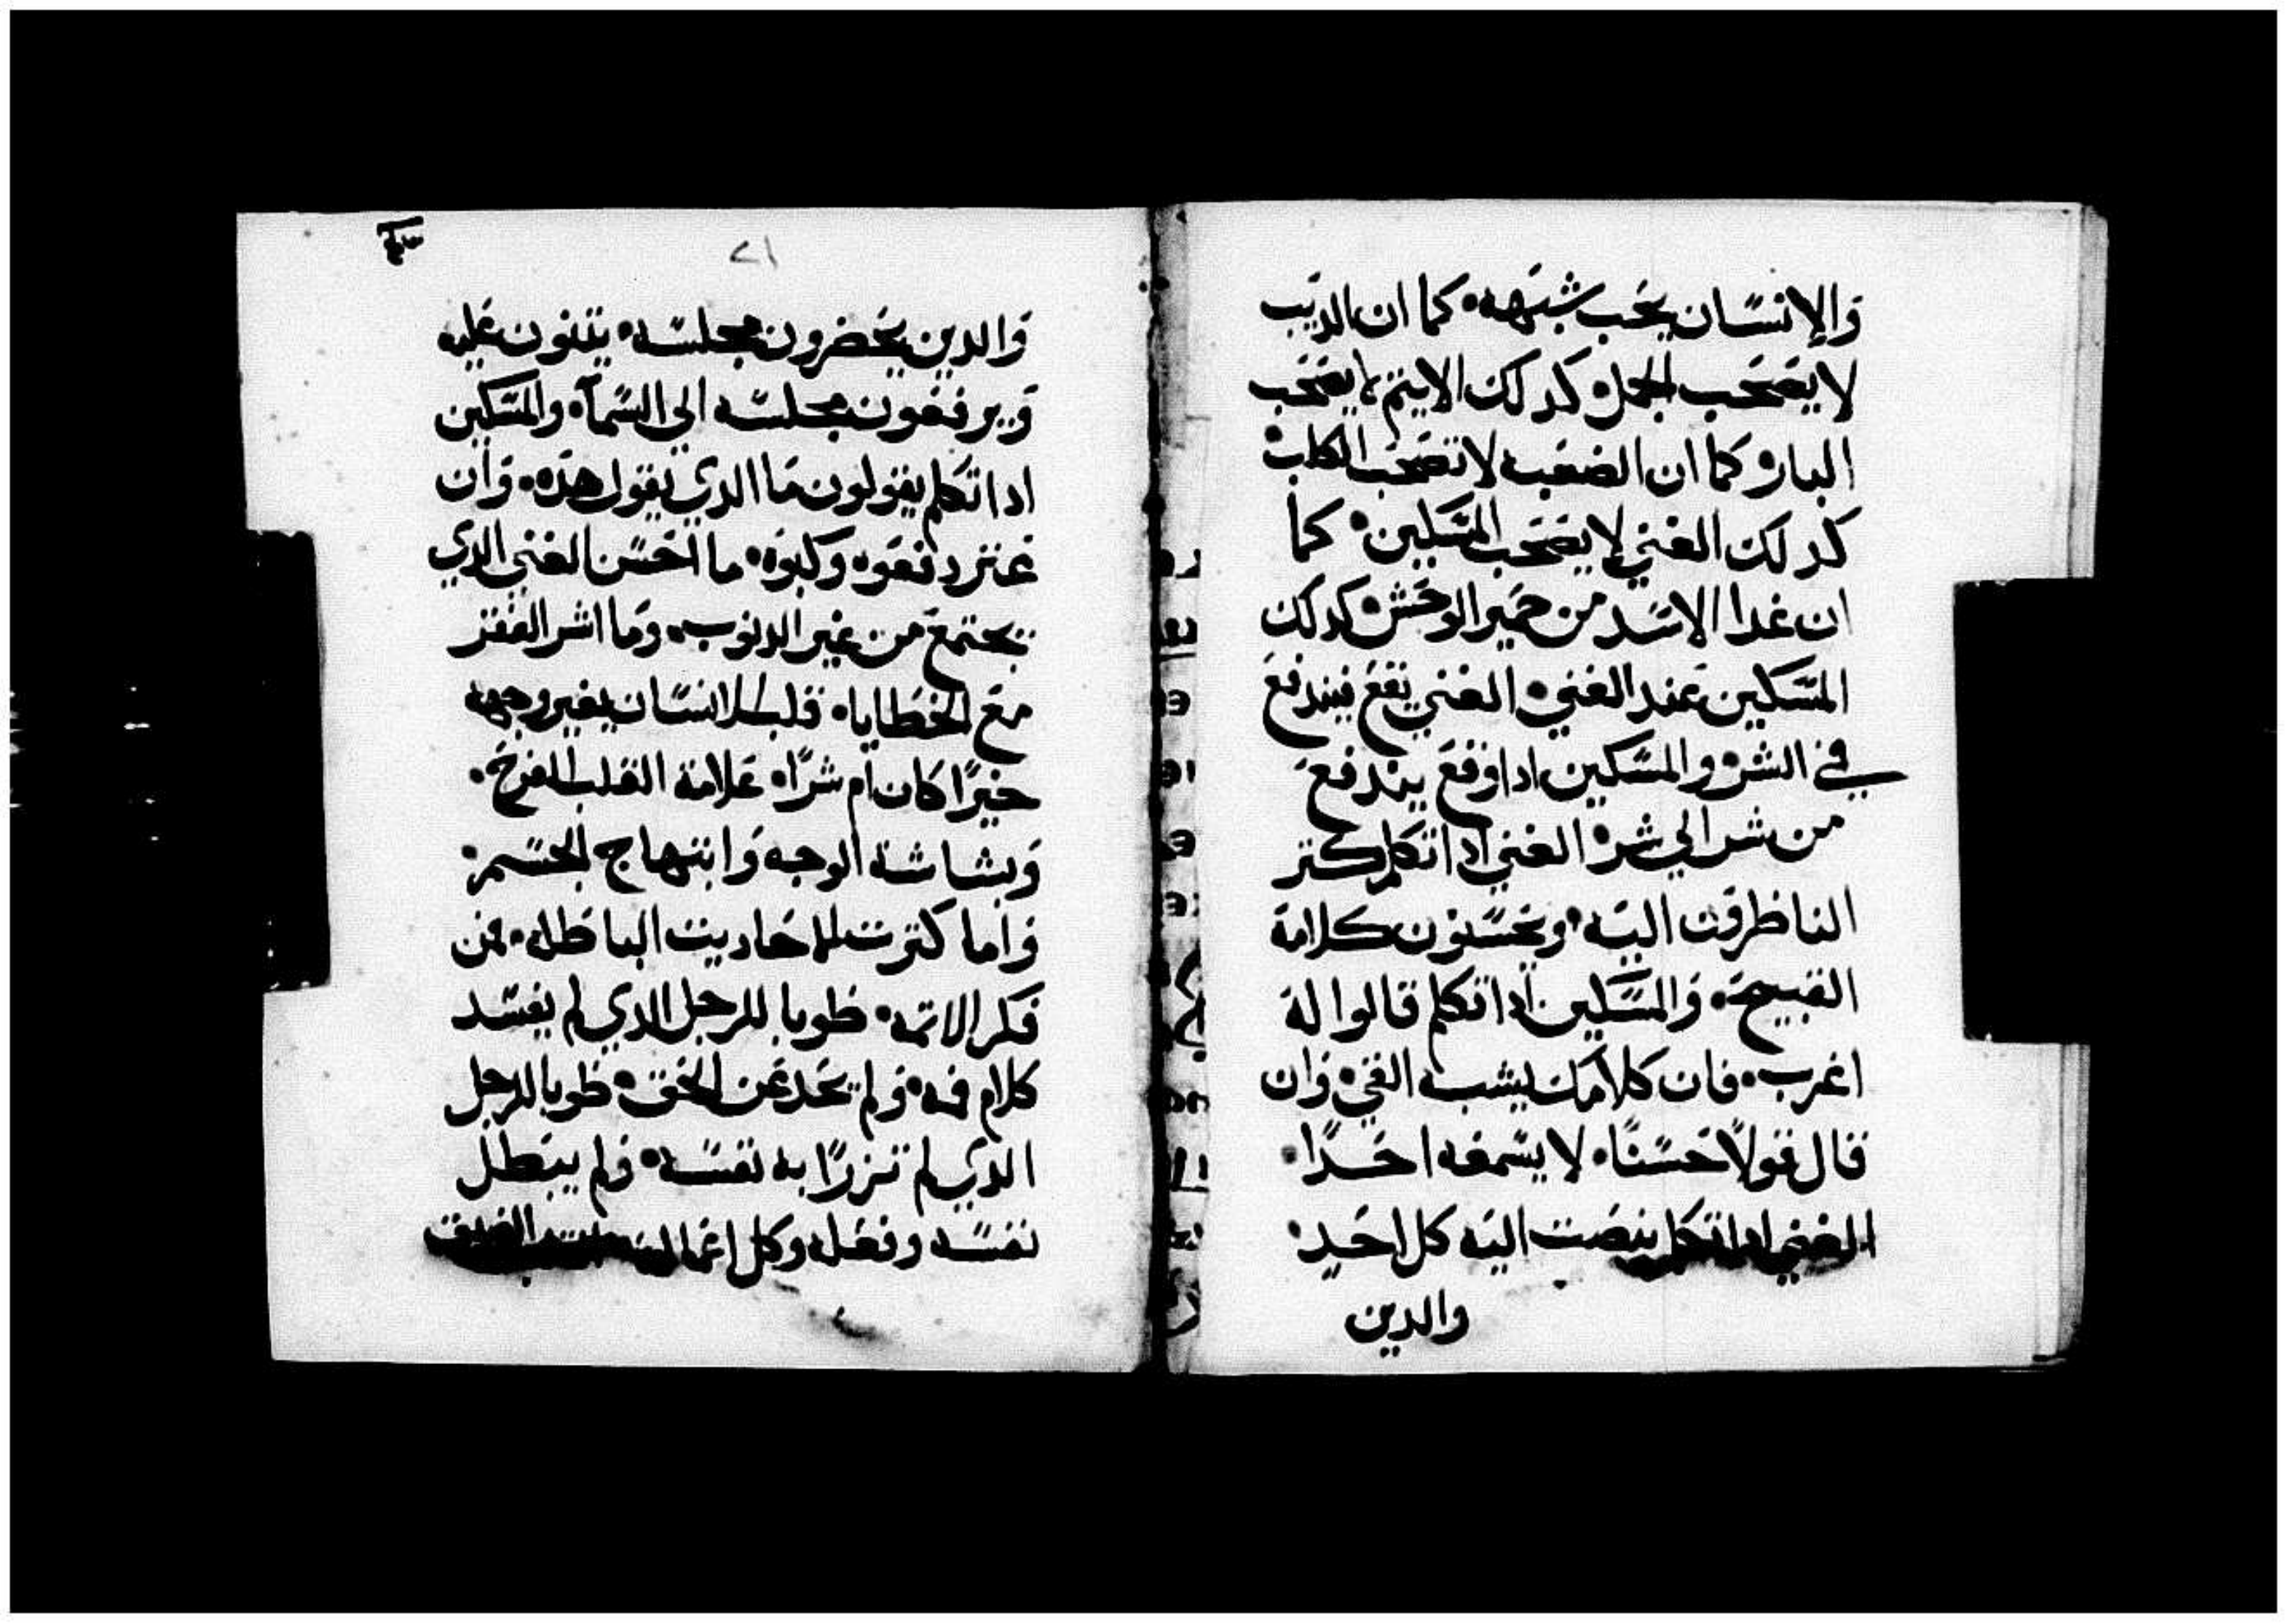 والإنسان يحب شبهه• كما ان الديب
لا يصحب الحمل• كدلك الاثيم لا يصحب
البار• كما ان الضبعه لا تصحب الكلب•
كدلك الغني لا يصحب المسكين• كما
ان غدا الاسد من حمير الوحش• كدلك
المسكين عند الغني• الغني يقع فيندفع
في الشر• والمسكين ادا وقع يندفع
من شر الي شر• الغني ادا تكلم كتر
الناظرون اليه• ويحسنون كلامة
القبيح• والمسكين ادا تكلم قالوا لة
اغرب• فان كلامك يشبه القي• وان
قال قولاً حسنًا• لا يسمعه احدًا•
الغني ادا تكلم ينصت اليه كل احد•
والدين
٢١
والدين يحضرون مجلسه• يتنون عليه
ويرفعون مجلسه الي السمآ• والمسكين
ادا تكلم يقولون ما الدي يقول هدة• وان
عتر دفعوه وكبوه• ما احسن الغني الدي
يجتمع من غير الدنوب• وما اشر الفقر
مع الخطايا• قلب الانسان يغير وجهه
خيرًا كان ام شرًا• علامة القلب الفرح•
وبشاشة الوجه وابتهاج الجسم•
واما كترت الاحاديت الباطله• من
فكر الاتمه• طوبا للرجل الدي لم يفسد
كلام فمه• ولم يحد عن الحق• طوبا للرجل
الدي لم تزرًا به نفسه• ولم يبطل
نفسه وفعله وكل اعماله